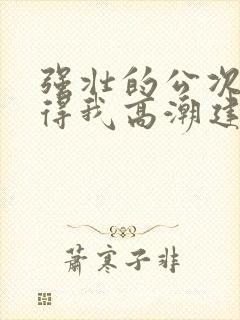 强壮的公次
得我高潮连
萧寒子非